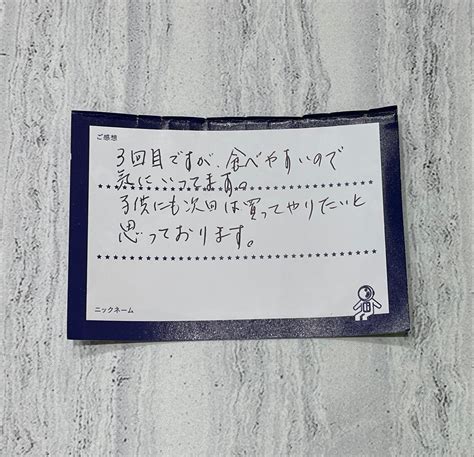 ご感想
3回目ですが、食べやすいので
気にいってます。
子供にも次回は買ってやりたいと
思っております。
ニックネーム